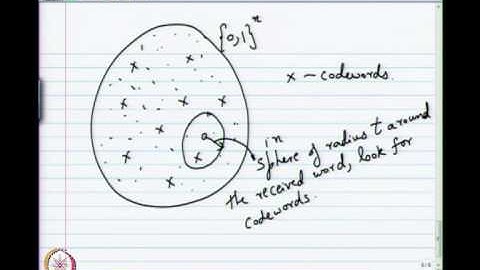 {0,1}^n
x – codewords.
in
sphere of radius t around
the received word, look for
codewords.